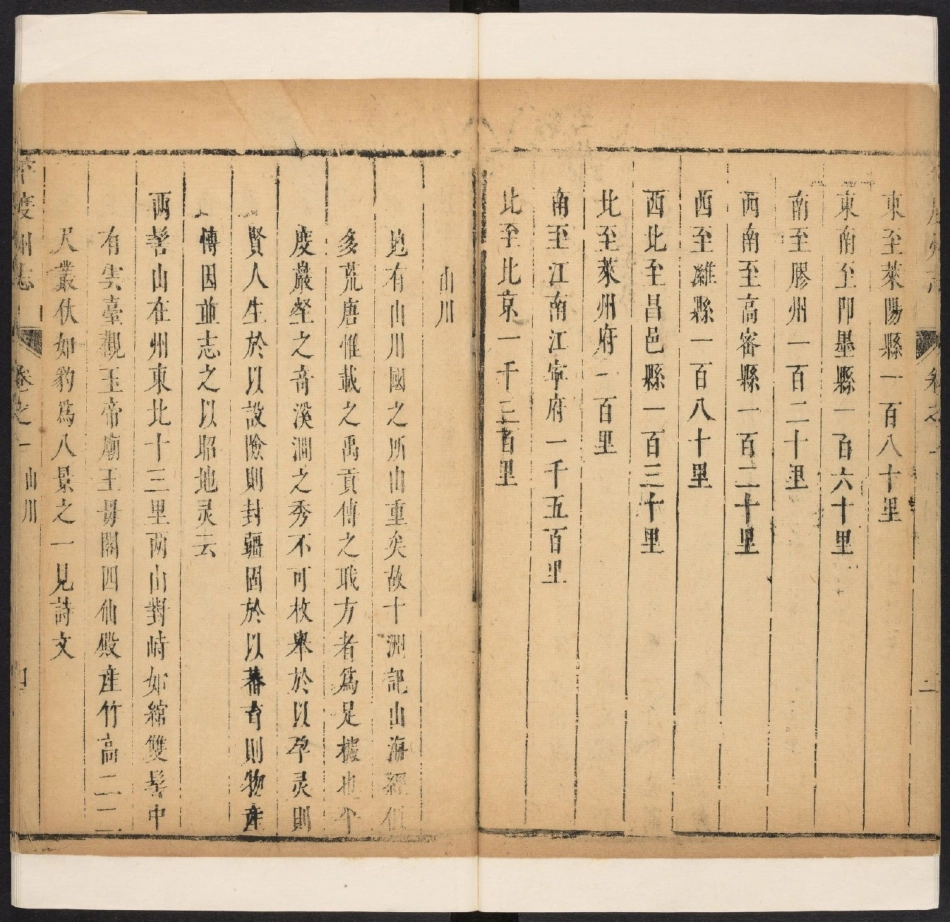 東至萊陽縣一百八十里
東南至即墨縣一百六十里
南至膠州一百二十里
西南至高密縣一百二十里
西至濰縣一百八十里
西北至昌邑縣一百三十里
北至萊州府一百里
南至江南江寧府一千五百里
北至北京一千三百里
山川
地有山川國之所由重矣故十洲記山海經俱
多荒唐惟載之禹貢傳之職方者爲足據也平
度巖壑之奇溪澗之秀不可枚舉於以孕灵則
賢人生於以設險則封疆固於以蕃育則物產
傳因並志之以昭地灵云
兩髻山在州東北十三里两山對峙如綰雙髻中
有雲臺觀玉帝廟王母閣四仙殿産竹高二三
尺叢伏如豹爲八景之一見詩文
平度州志
卷之一
山川